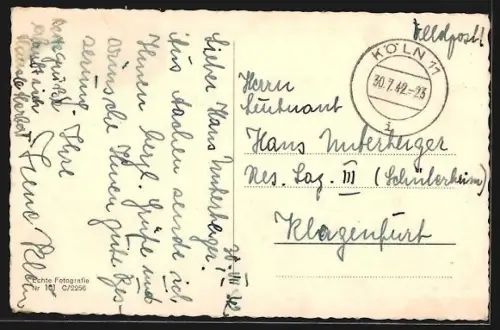 30. VII. 42.
Lieber Hans Unterberger!
Aus Aachen sende ich
Ihnen herzl. Grüße und
wünsche Ihnen gute Bes-
serung. Ihre
Irene
Echte Fotografie
Nr 101 C/2256
Feldpost!
KÖLN 11
30.7.42.-23
i
Herrn
Leutnant
Hans Unterberger
Res. Laz. III (Schülerheim)
Klagenfurt